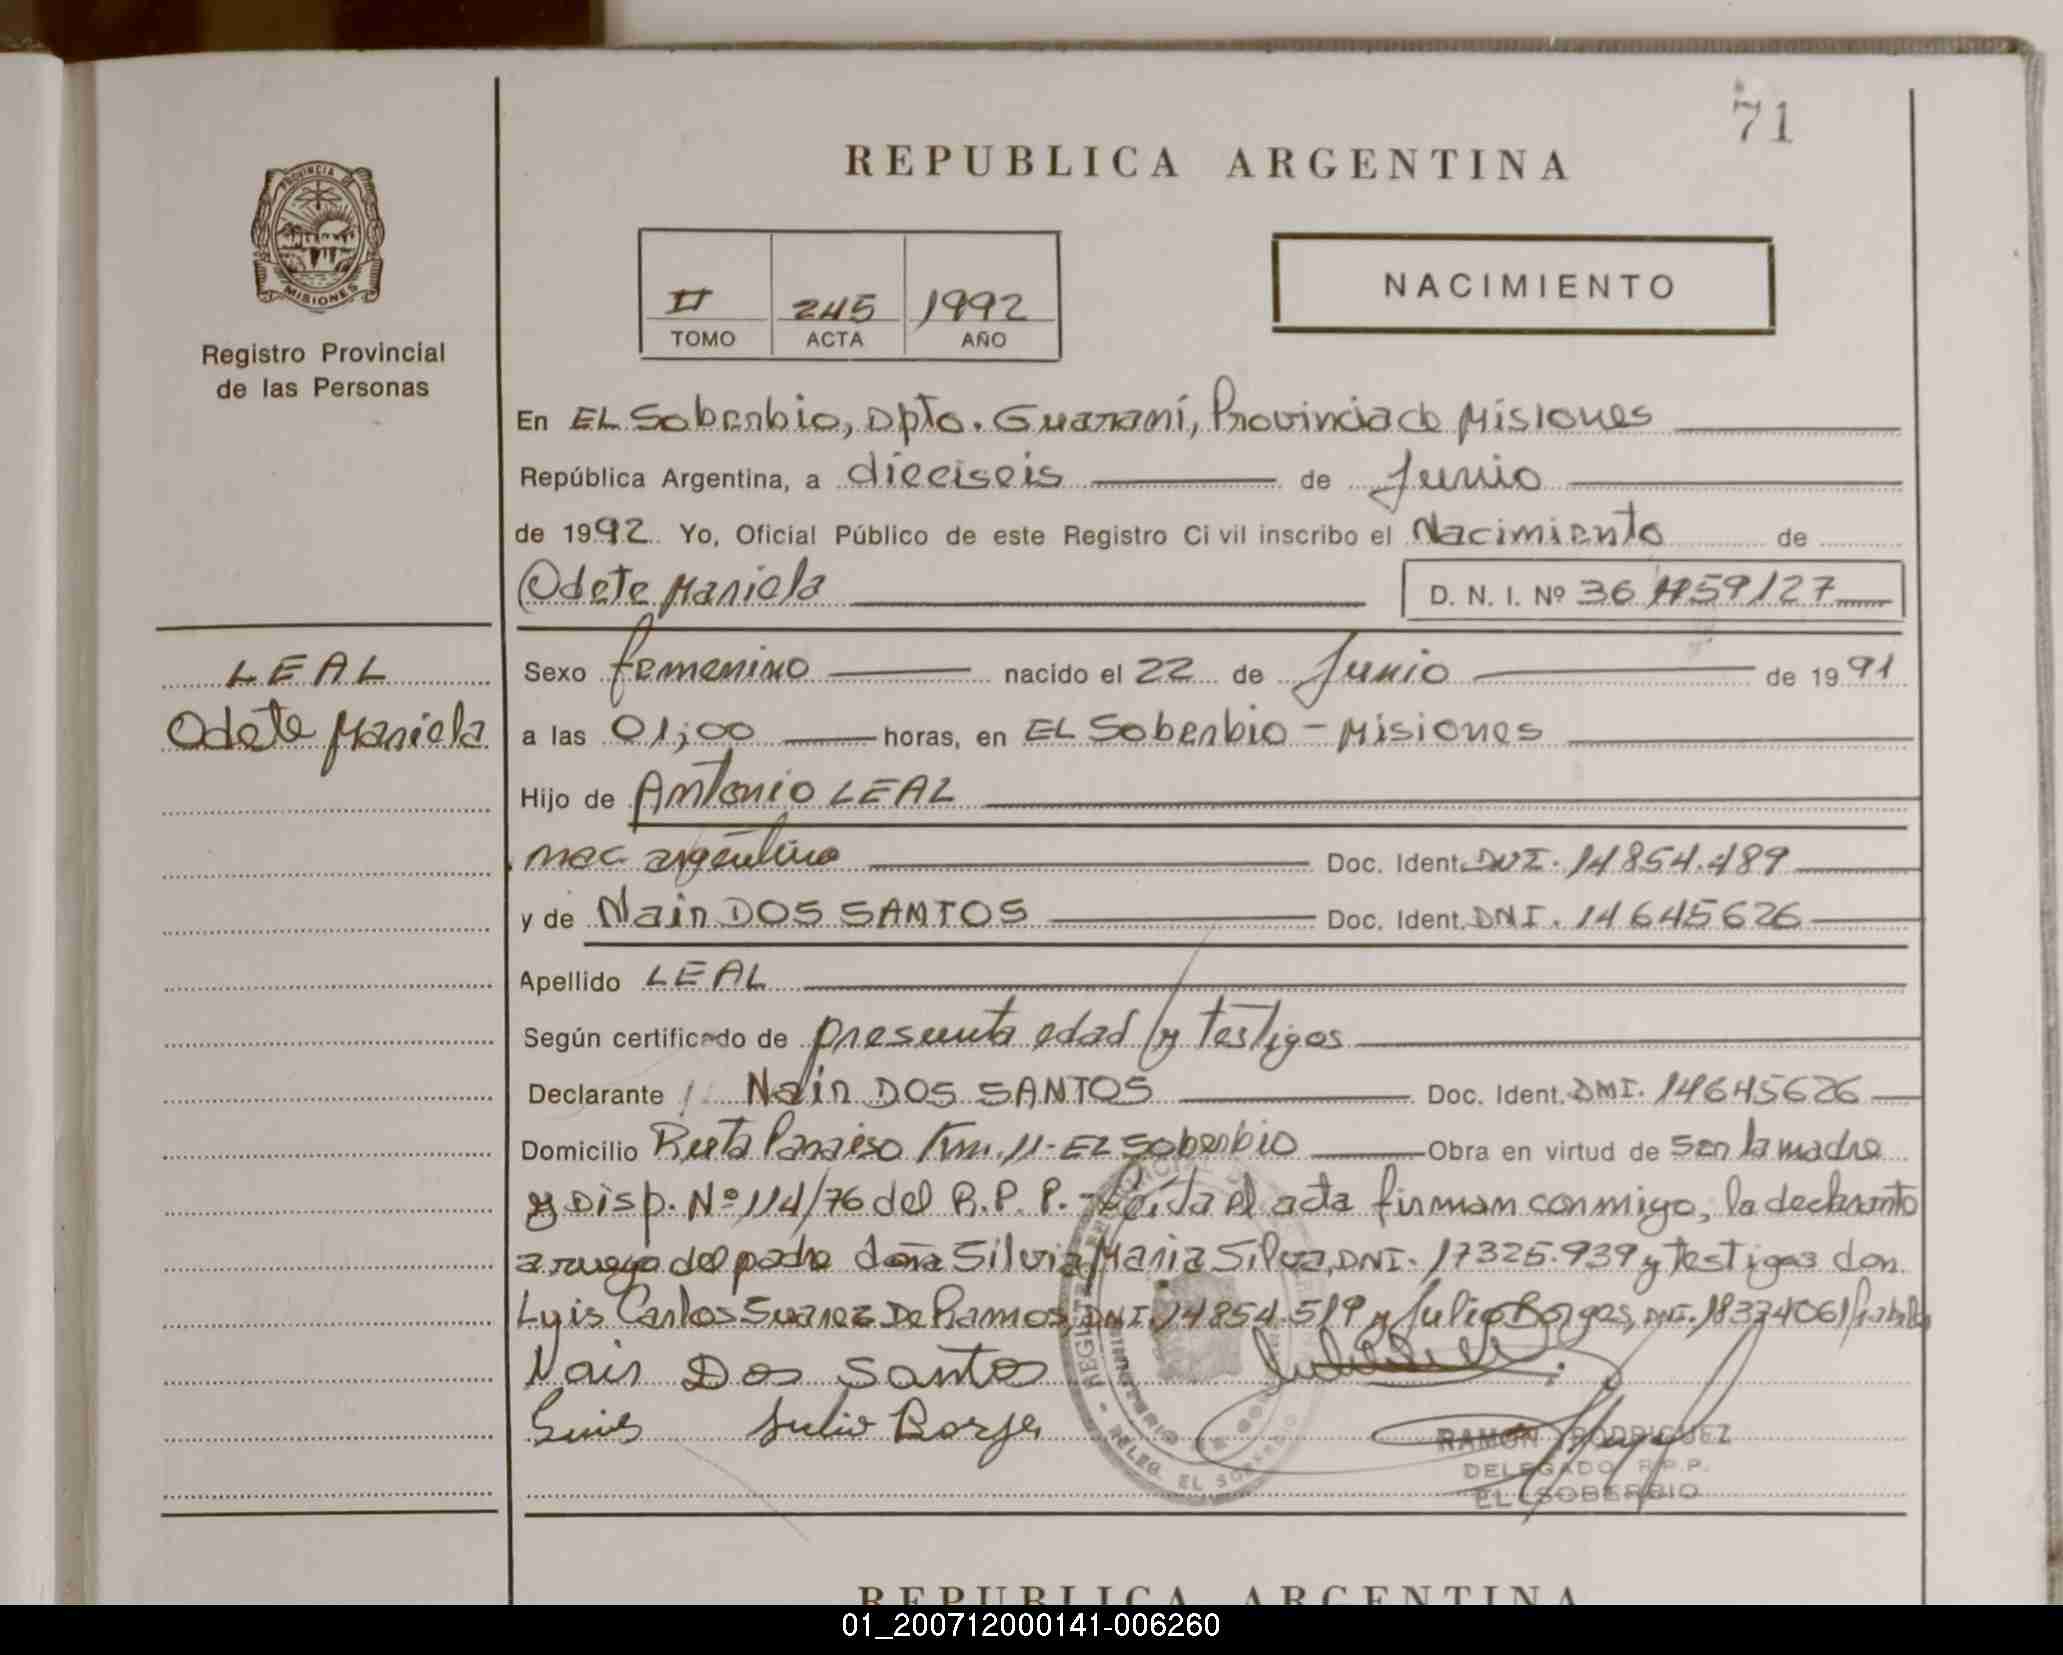 71
REPUBLICA ARGENTINA
PROVINCIA DE
MISIONES
Registro Provincial
de las Personas
II 245 1992
TOMO ACTA AÑO
NACIMIENTO
En EL Soberbio, Dpto. Guaraní, Provincia de Misiones
República Argentina, a dieciseis de Junio
de 1992 Yo, Oficial Público de este Registro Civil inscribo el Nacimiento de
Odete Mariela D. N. I. Nº 36
LEAL
Odete Mariela
Sexo femenino nacido el 22 de Junio de 1991
a las 01;00 horas, en EL Soberbio - Misiones
Hijo de Antonio LEAL
nac. argentino Doc. Ident. DNI. 14854.489
y de Nair DOS SANTOS Doc. Ident. DNI. 14645626
Apellido LEAL
Según certificado de presunta edad y testigos
Declarante Nair DOS SANTOS Doc. Ident. DNI. 14645626
Domicilio Ruta Paraiso Km. 11 - EL Soberbio Obra en virtud de ser la madre
y Disp. Nº 114/76 del R. P. P. - Leída el acta firman conmigo, la declarante
a ruego del padre doña Silvia Maria Silva, DNI. 17325.939 y testigos don
Luis Carlos Suarez De Ramos, DNI. 14854.519 y Julio Borges, DNI. 18374061
Nair Dos Santos
Luis Julio Borges
RAMON RODRIGUEZ
DELEGADO R.P.P.
EL SOBERBIO
DELEG. EL SOBERBIO
REPUBLICA ARGENTINA
01_200712000141-006260